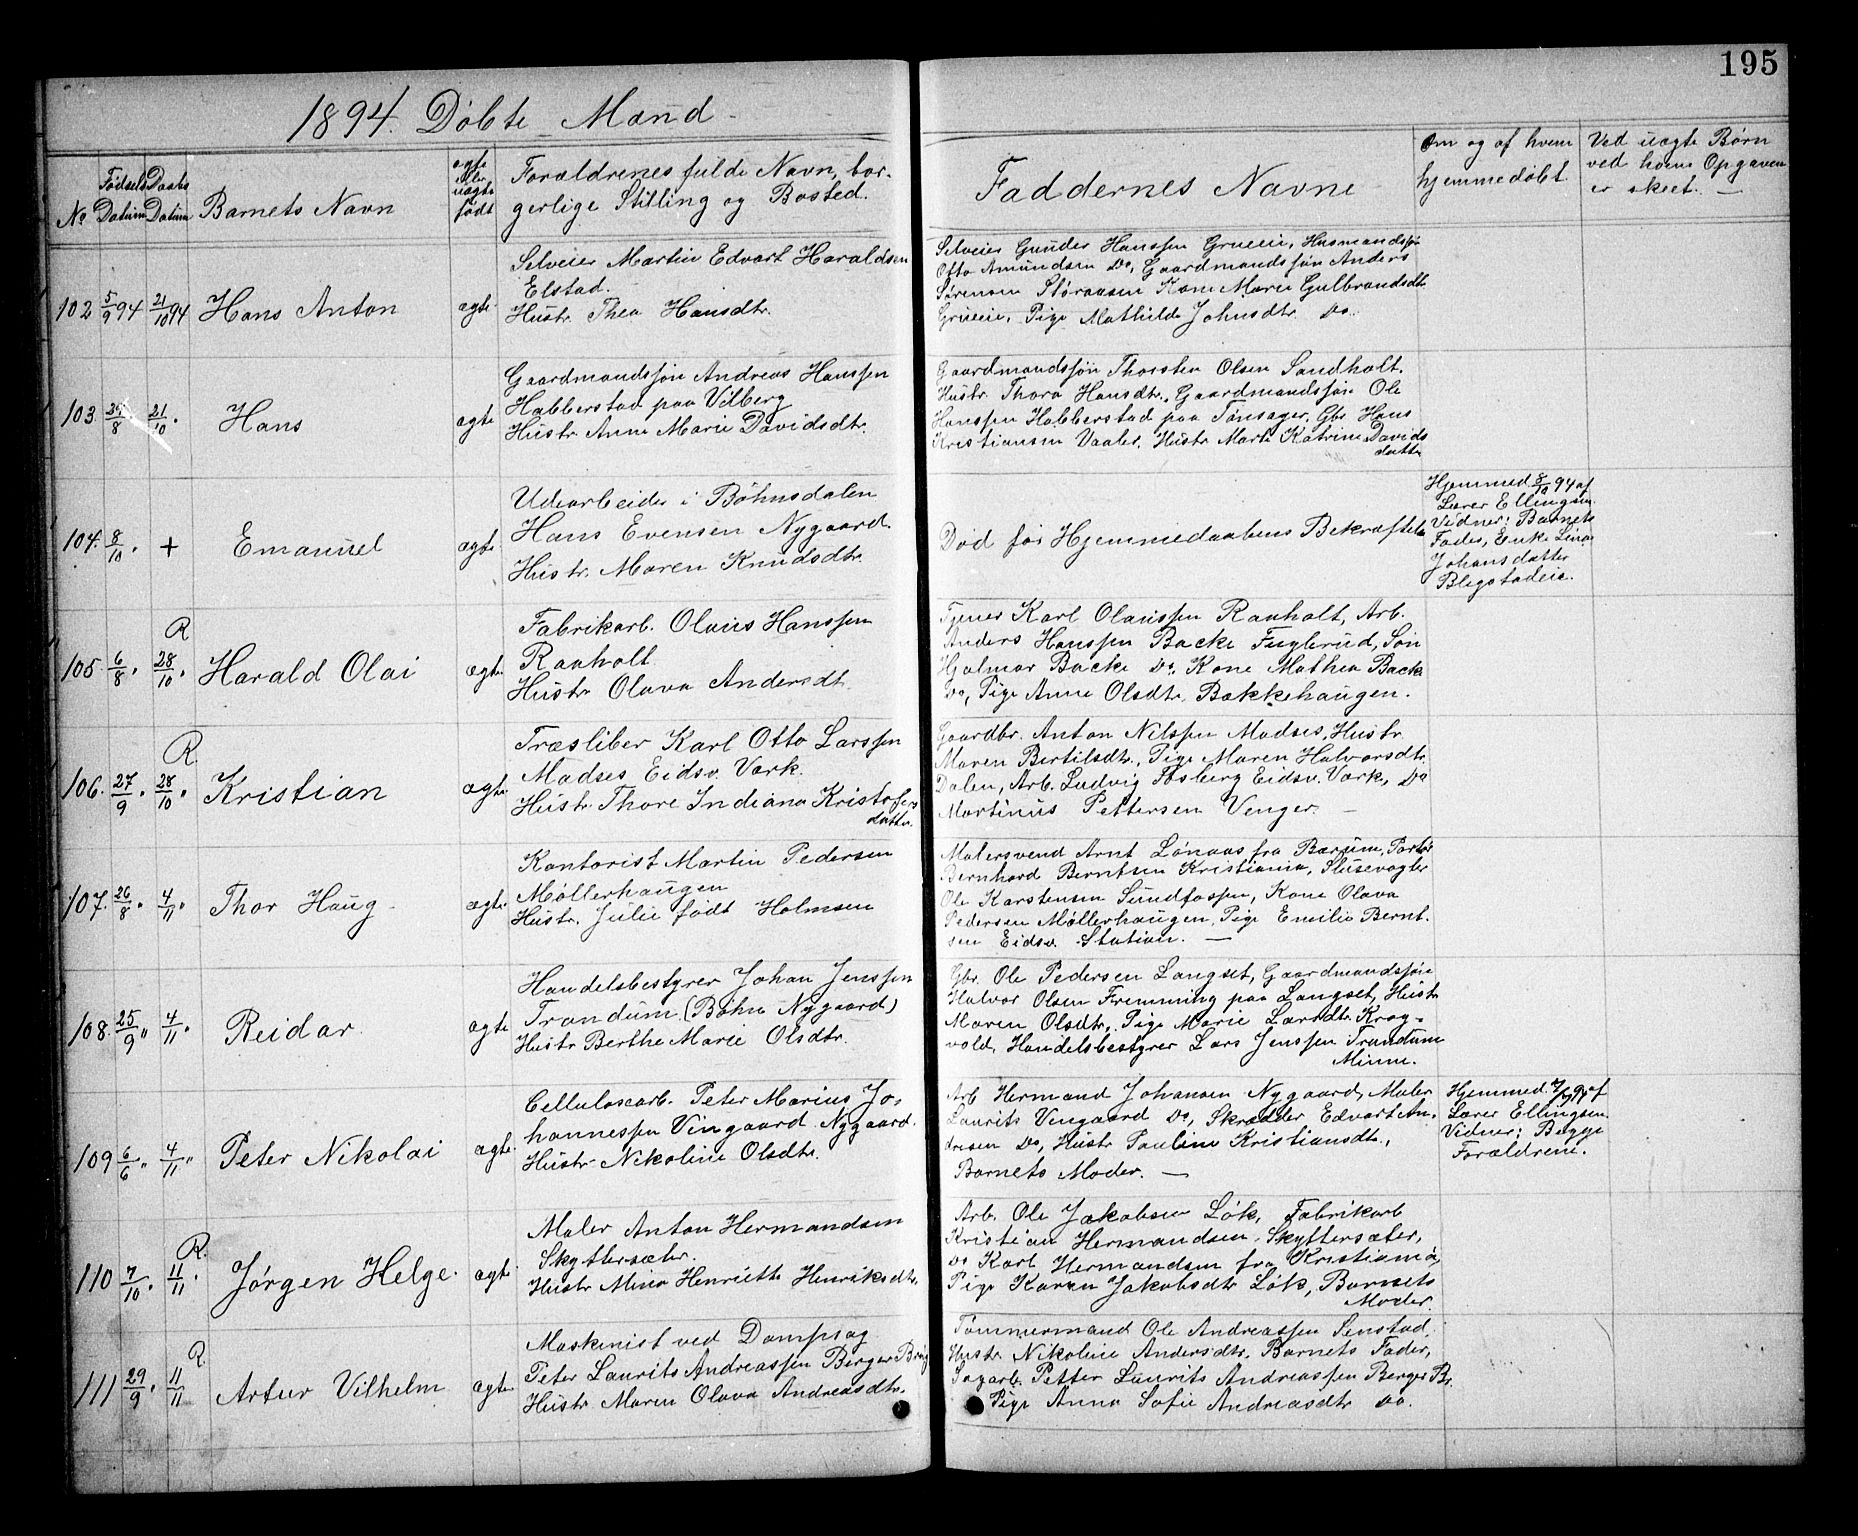 195
1894. Döbte Mænd
No
Fødsels Datum
Daabs Datum
Barnets Navn
ægte eller uægte født
Forældrenes fulde Navn, bor-
gerlige Stilling og Bosted.
Faddernes Navne
Om og af hvem
hjemmedøbt
Ved uægte Børn
ved hvem Opgaven
er skeet. —
102 5/9 94 21/10 94 Hans Anton ægte
Selveier Martin Edvart Haraldsen
Elstad.
Hustr. Thea Hansdtr.
Selveier Gunder Hanssen Grueeie, Husmandssøn
Otto Amundsen Do, Gaardmandssøn Anders
Sørensen Støraasen Kone Marie Gulbrandsdtr
Grueeie, Pige Mathilde Johnsdtr Do.
103. 29/8 21/10 " Hans ægte
Gaardmandssøn Andreas Hanssen
Habberstad paa Vilberg
Hustr. Anne Marie Davidsdtr.
Gaardmandssøn Thorsten Olsen Sandholt.
Hustr. Thora Hansdtr., Gaardmandssøn Ole
Hanssen Habberstad paa Tønsager, Gbr. Hans
Kristiansen Vaaler, Hustr. Marte Katrine Davids
datter
104. 8/10 " + Emanuel ægte
Udearbeider i Bøhnsdalen
Hans Evensen Nygaard.
Hustr. Maren Knudsdtr.
Død før Hjemmedaabens Bekræftelse
Hjemmed. 8/10 94 af
Lærer Ellingsen.
Vidner: Barnets
Fader, Enke Lina
Johansdatter
Blegstadeie.
R
105. 6/8 " 28/10 " Harald Olai ægte
Fabrikarb. Olaus Hanssen
Raaholt
Hustr Olava Andersdt.
Tjener Karl Olaussen Raaholt, Arb.
Anders Hanssen Backe Fuglerud, Søn
Hjalmar Backe Do, Kone Mathea Backe
Do, Pige Anne Olsdtr. Bakkehaugen.
R.
106. 27/9 " 28/10 " Kristian ægte
Træsliber Karl Otto Larssen
Madses Eidsv. Værk.
Hustr. Thore Indiana Kristofers
datter.
Gaardbr. Anton Nilssen Madses, Hustr
Maren Bertilsdtr., Pige Maren Halvorsdtr.
Dalen, Arb. Ludvig Fosberg Eidsv. Værk, Do
Martinus Pettersen Venger. —
107. 26/8 " 4/11 " Thor Haug ægte
Kontorist Martin Pedersen
Møllerhaugen
Hustr. Julie født Holmsen
Malersvend Arnt Lønaas fra Bærum, Portør
Bernhard Berntsen Kristiania, Slusevogter
Ole Karstensen Sundfossen, Kone Olava
Pedersen Møllerhaugen, Pige Emilie Bernt-
sen Eidsv. Station. —
108. 25/9 " 4/11 " Reidar ægte
Handelsbestyrer Johan Jenssen
Trandum (Bøhn Nygaard)
Hustr Berthe Marie Olsdtr.
Gbr. Ole Pedersen Langset, Gaardmandssøn
Halvor Olsen Fremming paa Langset, Hustr
Maren Olsdtr., Pige Marie Larsdtr. Krog-
vold, Handelsbestyrer Lars Jenssen Trandum
Minne.
109 6/6 " 4/11 " Peter Nikolai ægte
Cellulosearb. Peter Marius Jo-
hannessen Vingaard Nygaard.
Hustr Nikoline Olsdtr.
Arb Hermand Johansen Nygaard, Maler
Laurits Vengaard Do, Skrædder Edvart An-
dresen Do, Hustr Pauline Kristiansdtr.,
Barnets Moder. —
Hjemmed. 94 af
Lærer Ellingsen.
Vidner: Begge
Forældrene.
R.
110 7/10 " 11/11 " Jørgen Helge ægte
Maler Anton Hermandsen
Skyttersæter.
Hustr Mina Henriette Henriksdtr.
Arb. Ole Jakobsen Løk, Fabrikarb
Kristian Hermandsen Skyttersæter,
Do Karl Hermandsen fra Kristiania,
Pige Karen Jakobsdtr Løk, Barnets
Moder.
R.
111 29/9 " 11/11 Artur Vilhelm ægte
Maskinist ved Dampsag
Peter Laurits Andreassen Berger Brug
Hustr. Maren Olava Andreasdtr.
Tømmermand Ole Andreassen Senstad,
Hustr. Nikoline Andersdtr., Barnets Fader,
Sagarb. Petter Laurits Andreassen Berger Br.
Pige Anna Sofie Andreasdtr Do.